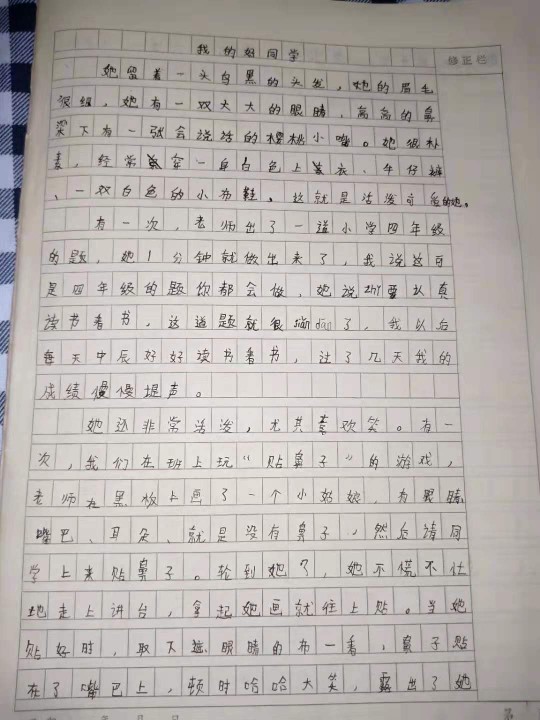 我的好同学
修正栏
她留着一头乌黑的头发，她的眉毛
很细，她有一双大大的眼睛，高高的鼻
梁下有一张会说话的樱桃小嘴。她很朴
素，经常穿一身白色上衣、牛仔裤
、一双白色的小布鞋，这就是活泼可爱的她。
有一次，老师出了一道小学四年级
的题，她1分钟就做出来了，我说这可
是四年级的题你都会做，她说zhǐ要认真
读书看书，这道题就很简dān了，我以后
每天中辰好好读书看书，过了几天我的
成绩慢慢堤声。
她还非常活泼，尤其喜欢笑。有一
次，我们在班上玩“贴鼻子”的游戏，
老师在黑板上画了一个小姑娘，有眼睛
嘴巴、耳朵、就是没有鼻子，然后请同
学上来贴鼻子。轮到她了，她不慌不仕
地走上讲台，拿起她画就往上贴。当她
贴好时，取下遮眼睛的布一看，鼻子贴
在了嘴巴上，顿时哈哈大笑，露出了她